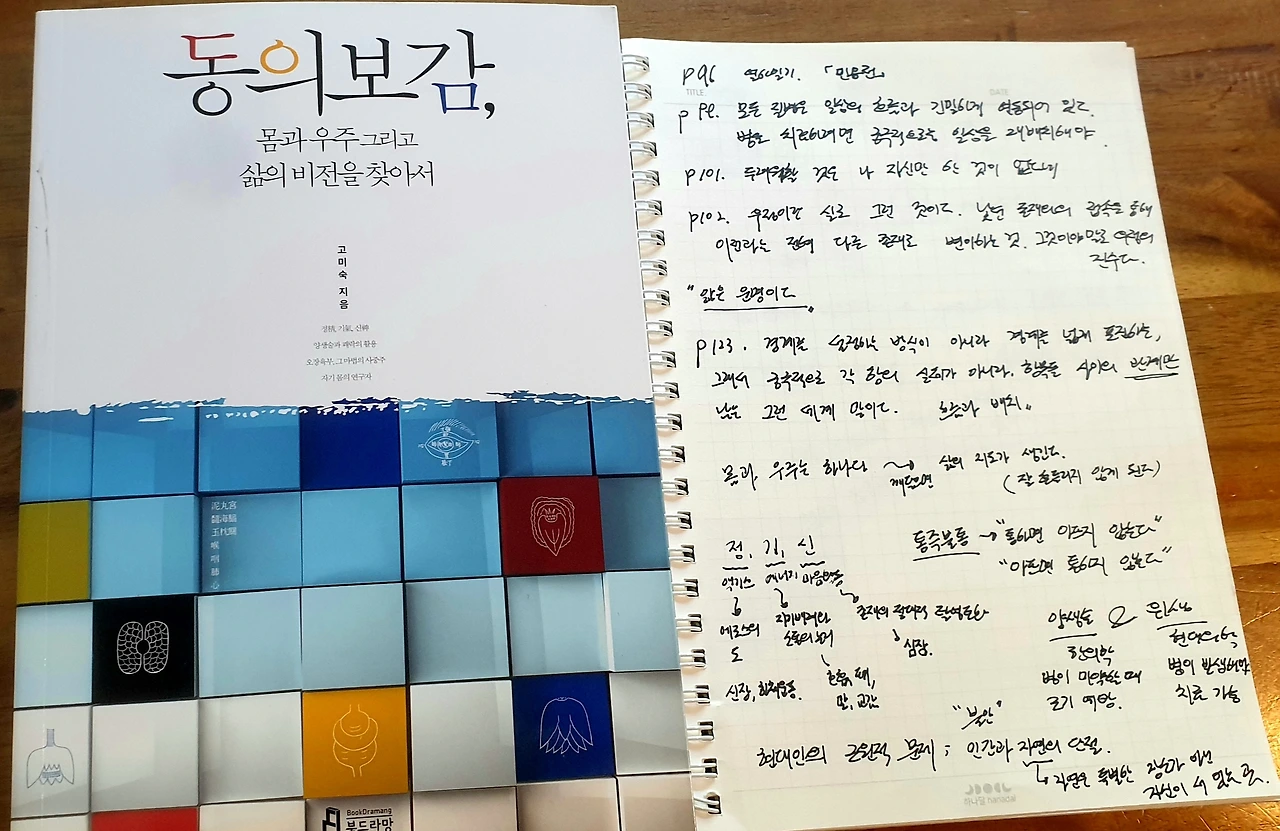 동의보감,
몸과 우주 그리고
삶의 비전을 찾아서
고미숙 지음
정精, 기氣, 신神
양생술과 쾌락의 활용
오장육부, 그 마법의 사중주
자기 몸의 연구자
泥丸宮
髓海腦
玉枕關
喉
咽
肺
心
BookDramang
북드라망
TITLE.
DATE.
p96 열하일기. 「민옹전」
p99. 모든 질병은 일상의 흐름과 긴밀하게 연동되어 있다.
병을 치료하려면 궁극적으로는 일상을 재배치해야.
p101. 두려워할 것은 나 자신만 한 것이 없다네
p102. 우정이란 실로 그런 것이다. 낯선 존재와의 접속을 통해
이전과는 전혀 다른 존재로 변이하는 것. 그것이야말로 우정의
진수다.
"앎은 운명이다
p123. 경계를 설정하는 방식이 아니라 경계를 넘게 포진하는,
그래서 궁극적으로 각 항의 실체가 아니라, 항목들 사이의 관계만
남는 그런 세계 말이다. 흐름과 배치.
몸과, 우주는 하나다 깨달으면 삶의 지도가 생긴다.
(잘 흔들리지 않게 된다)
정, 기, 신
엑기스 에너지 마음작용
에로스의
도
신장, 회춘운동.
존재의 절대적
심장.
호흡,
말, 교감
통즉불통 → "통하면 아프지 않는다"
"아프면 통하지 않는다"
양생술 & 위생
한의학 현대의학
병이 미약할 때 병이 발생해야
조기 예방. 치료 가능
"불안"
현대인의 근원적 문제; 인간과 자연의 단절.
자연은 특별한 장소가 아닌
자신이 서 있는 곳.
하나달 hanadal